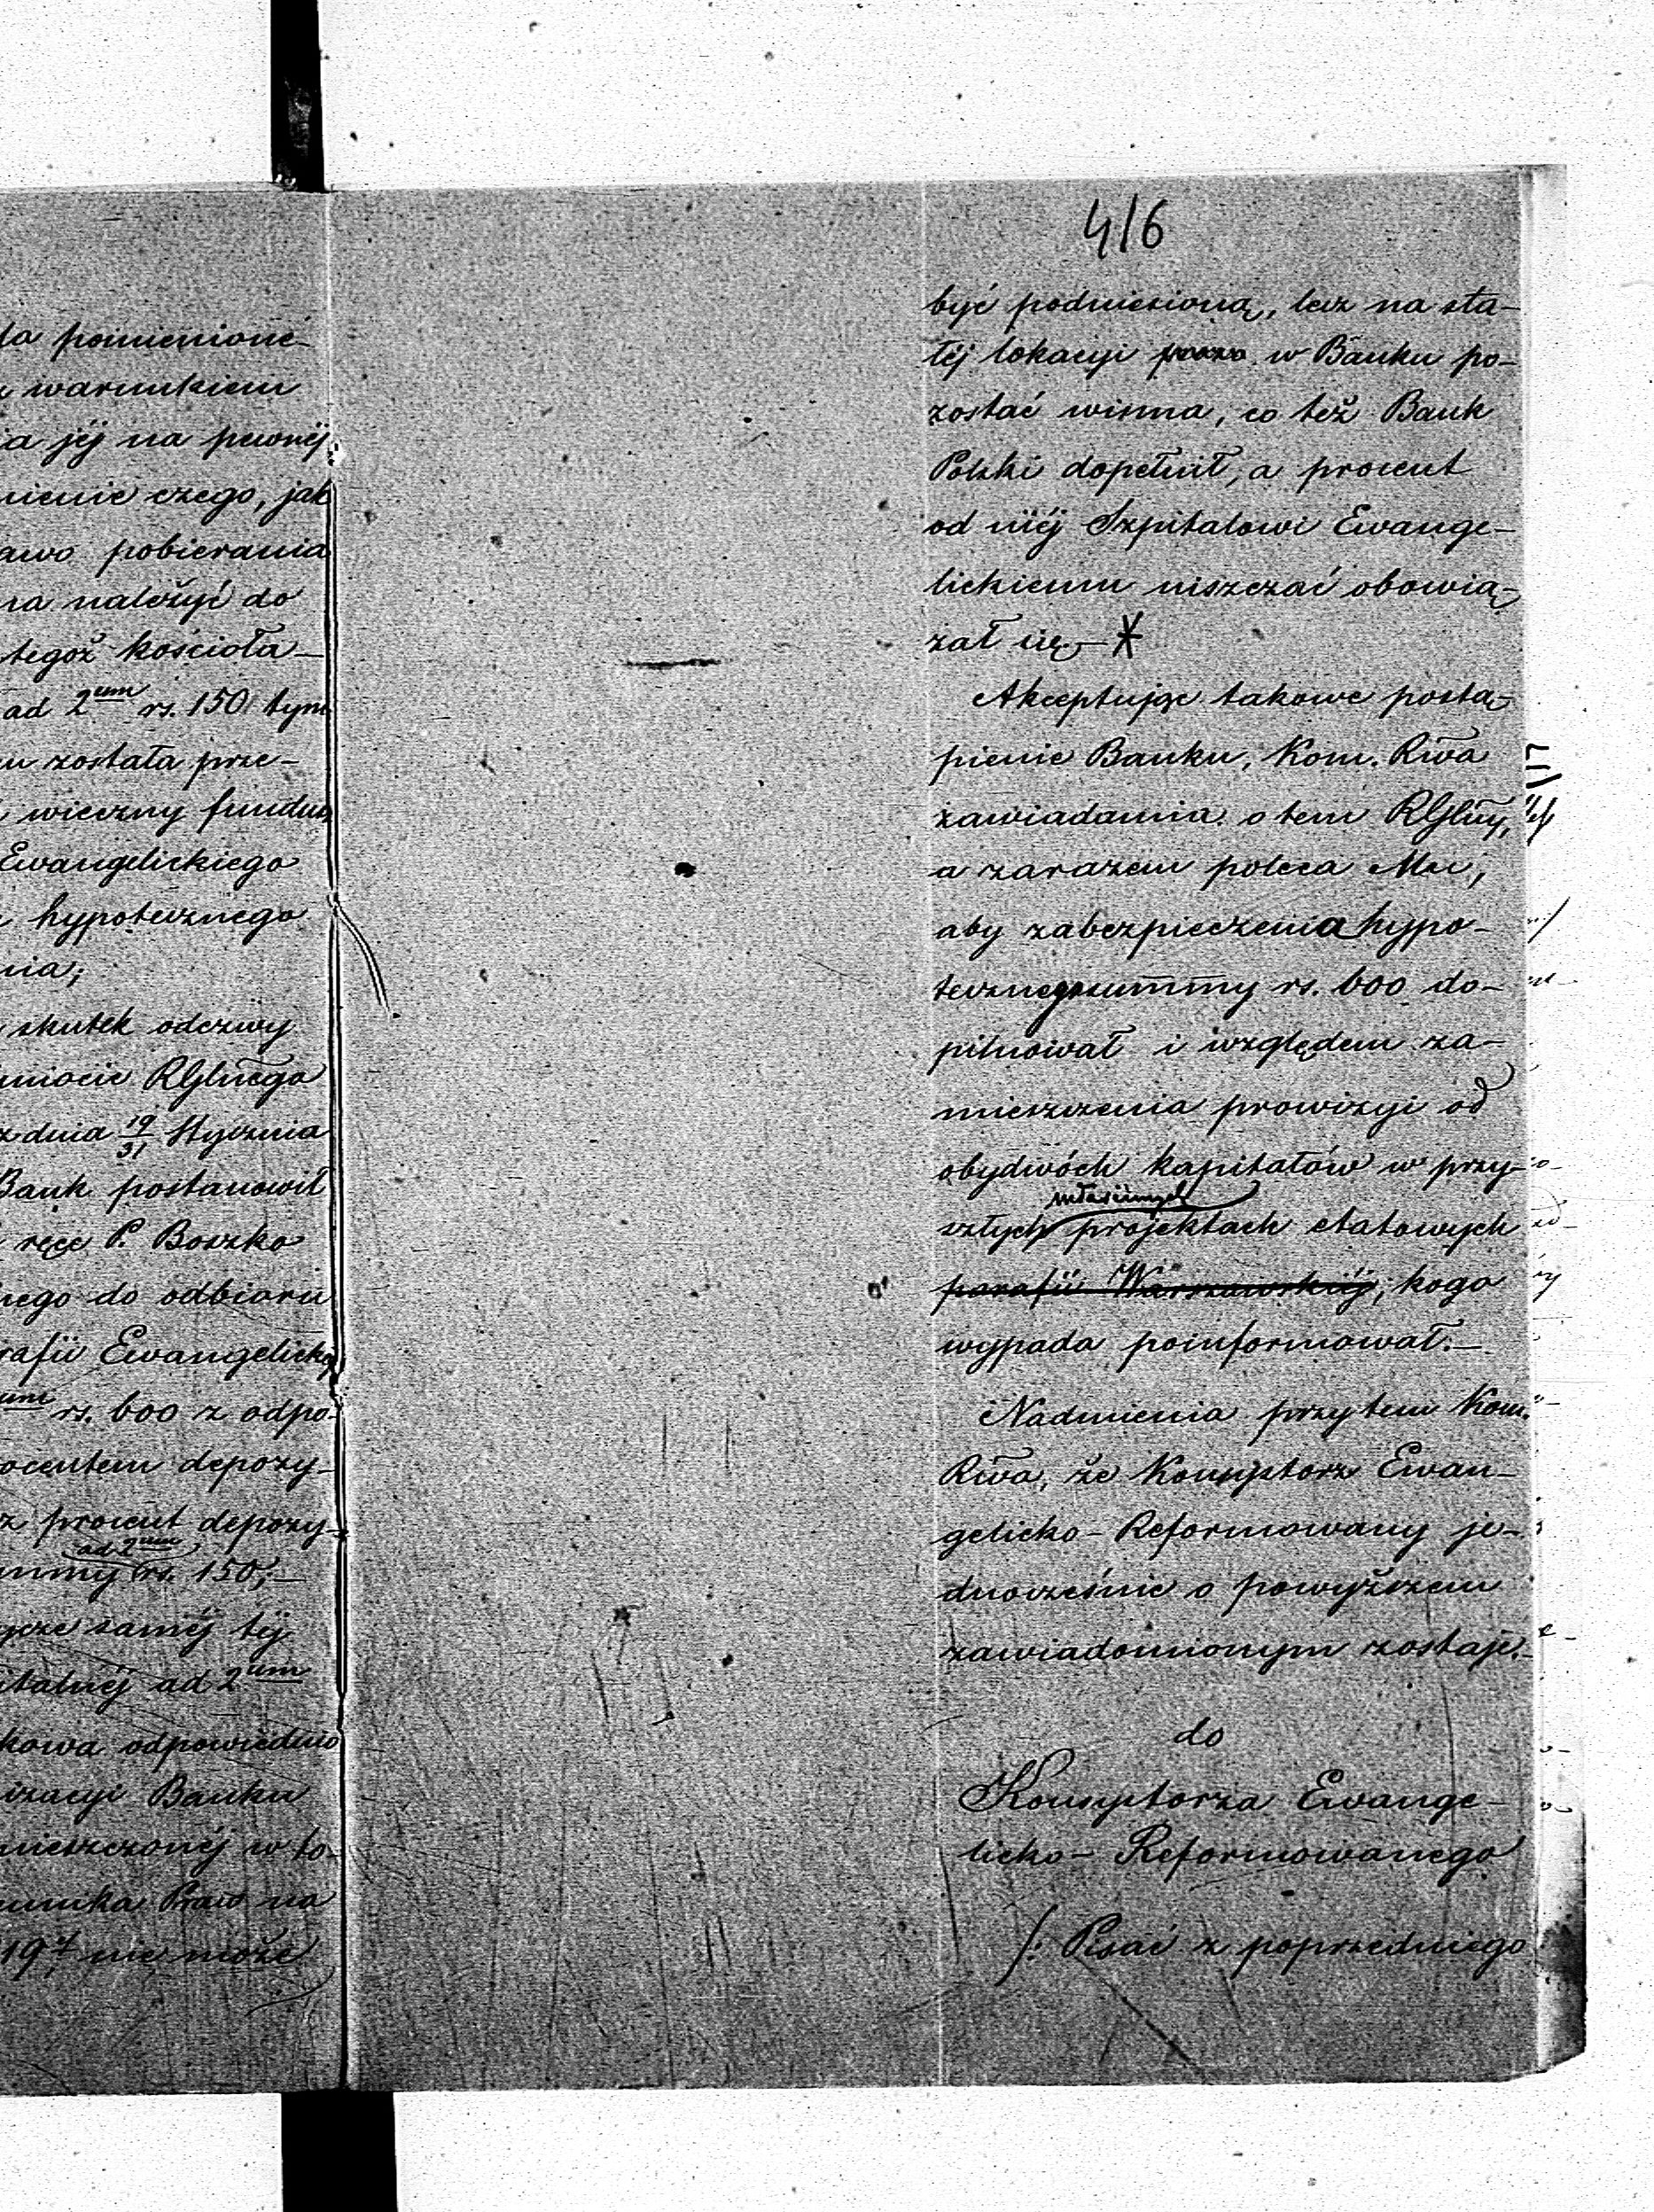 la pomienioné-
warunkiem
ia jéj na pewnéj
nienie czego, jak
awo pobierania
ra należyć do
tegoż kościoła -
ad 2um rs. 150 tym
została prze-
wieczny fundus
Ewangelickiego
hypotecznego
nia;
skutek odezwy
miocie RGlnego
z dnia 19/31 Stycznia
Bank postanowił
ręce P. Boszko
nego do odbioru
rafii Ewangelicko
um rs. 600 z odpo-
ocentem depozy-
z procent depozy-
ad 2um
mmy rs. 150;-
ycze saméj téj
italnéj ad 2um
kowa odpowiednio
izacyi Banku
mieszczonéj w to-
nnika Praw na
194, nie może
416
być podniesioną, lecz na sta-
łéj lokacyi w Banku po-
zostać winna, co też Bank
Polski dopełnił, a procent
od niéj Szpitalowi Ewange-
lickiemu uiszczać obowią-
zał się.-
Akceptując takowe postą-
pienie Banku, Kom. Rwa
zawiadamia o tem RGlny,
a zarazem poleca Mu,
aby zabezpieczenia hypo-
tecznego summy rs. 600 do-
pilnował i względem za-
mieszczenia prowizyi od
obydwóch kapitałów w przy-
właściwych
szłych projektach etatowych
parafii Warszawskiéj, kogo
wypada poinformował.-
Nadmienia przytem Kom.
Rwa, że Konsystorz Ewan-
gelicko-Reformowany je-
dnocześnie o powyższem
zawiadomionym zostaje.-
do
Konsystorza Ewange-
licko-Reformowanego
/: Pisać z poprzedniego